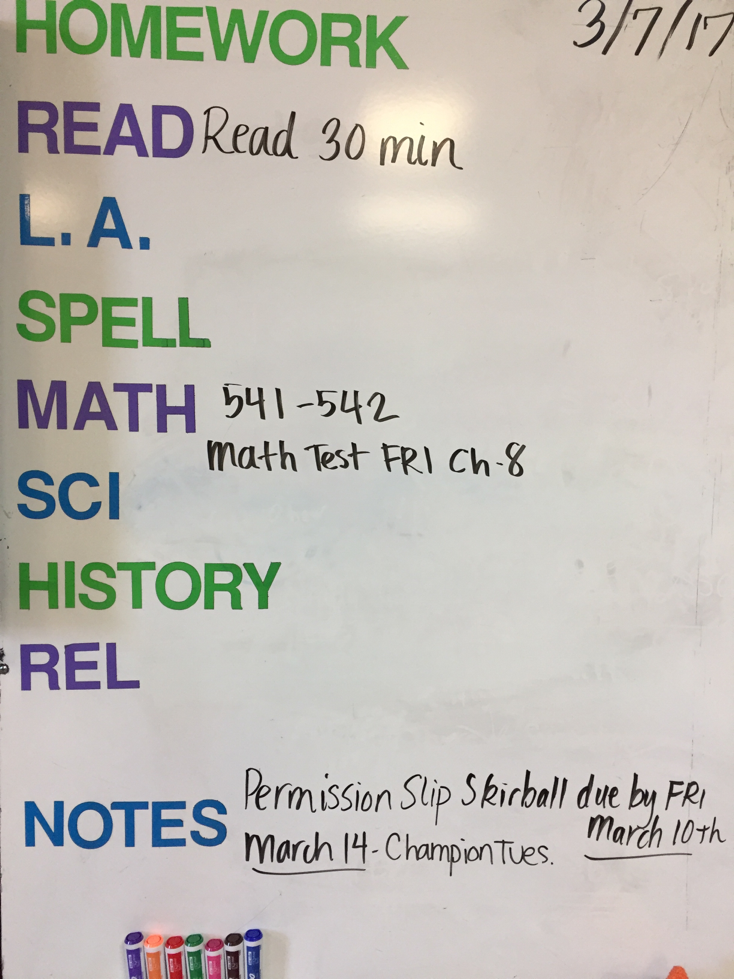 HOMEWORK 3/7/17
READ Read 30 min
L. A.
SPELL
MATH 541-542
Math Test FRI Ch-8
SCI
HISTORY
REL
Permission Slip Skirball due by FRI
NOTES March 10th
March 14 - Champion Tues.